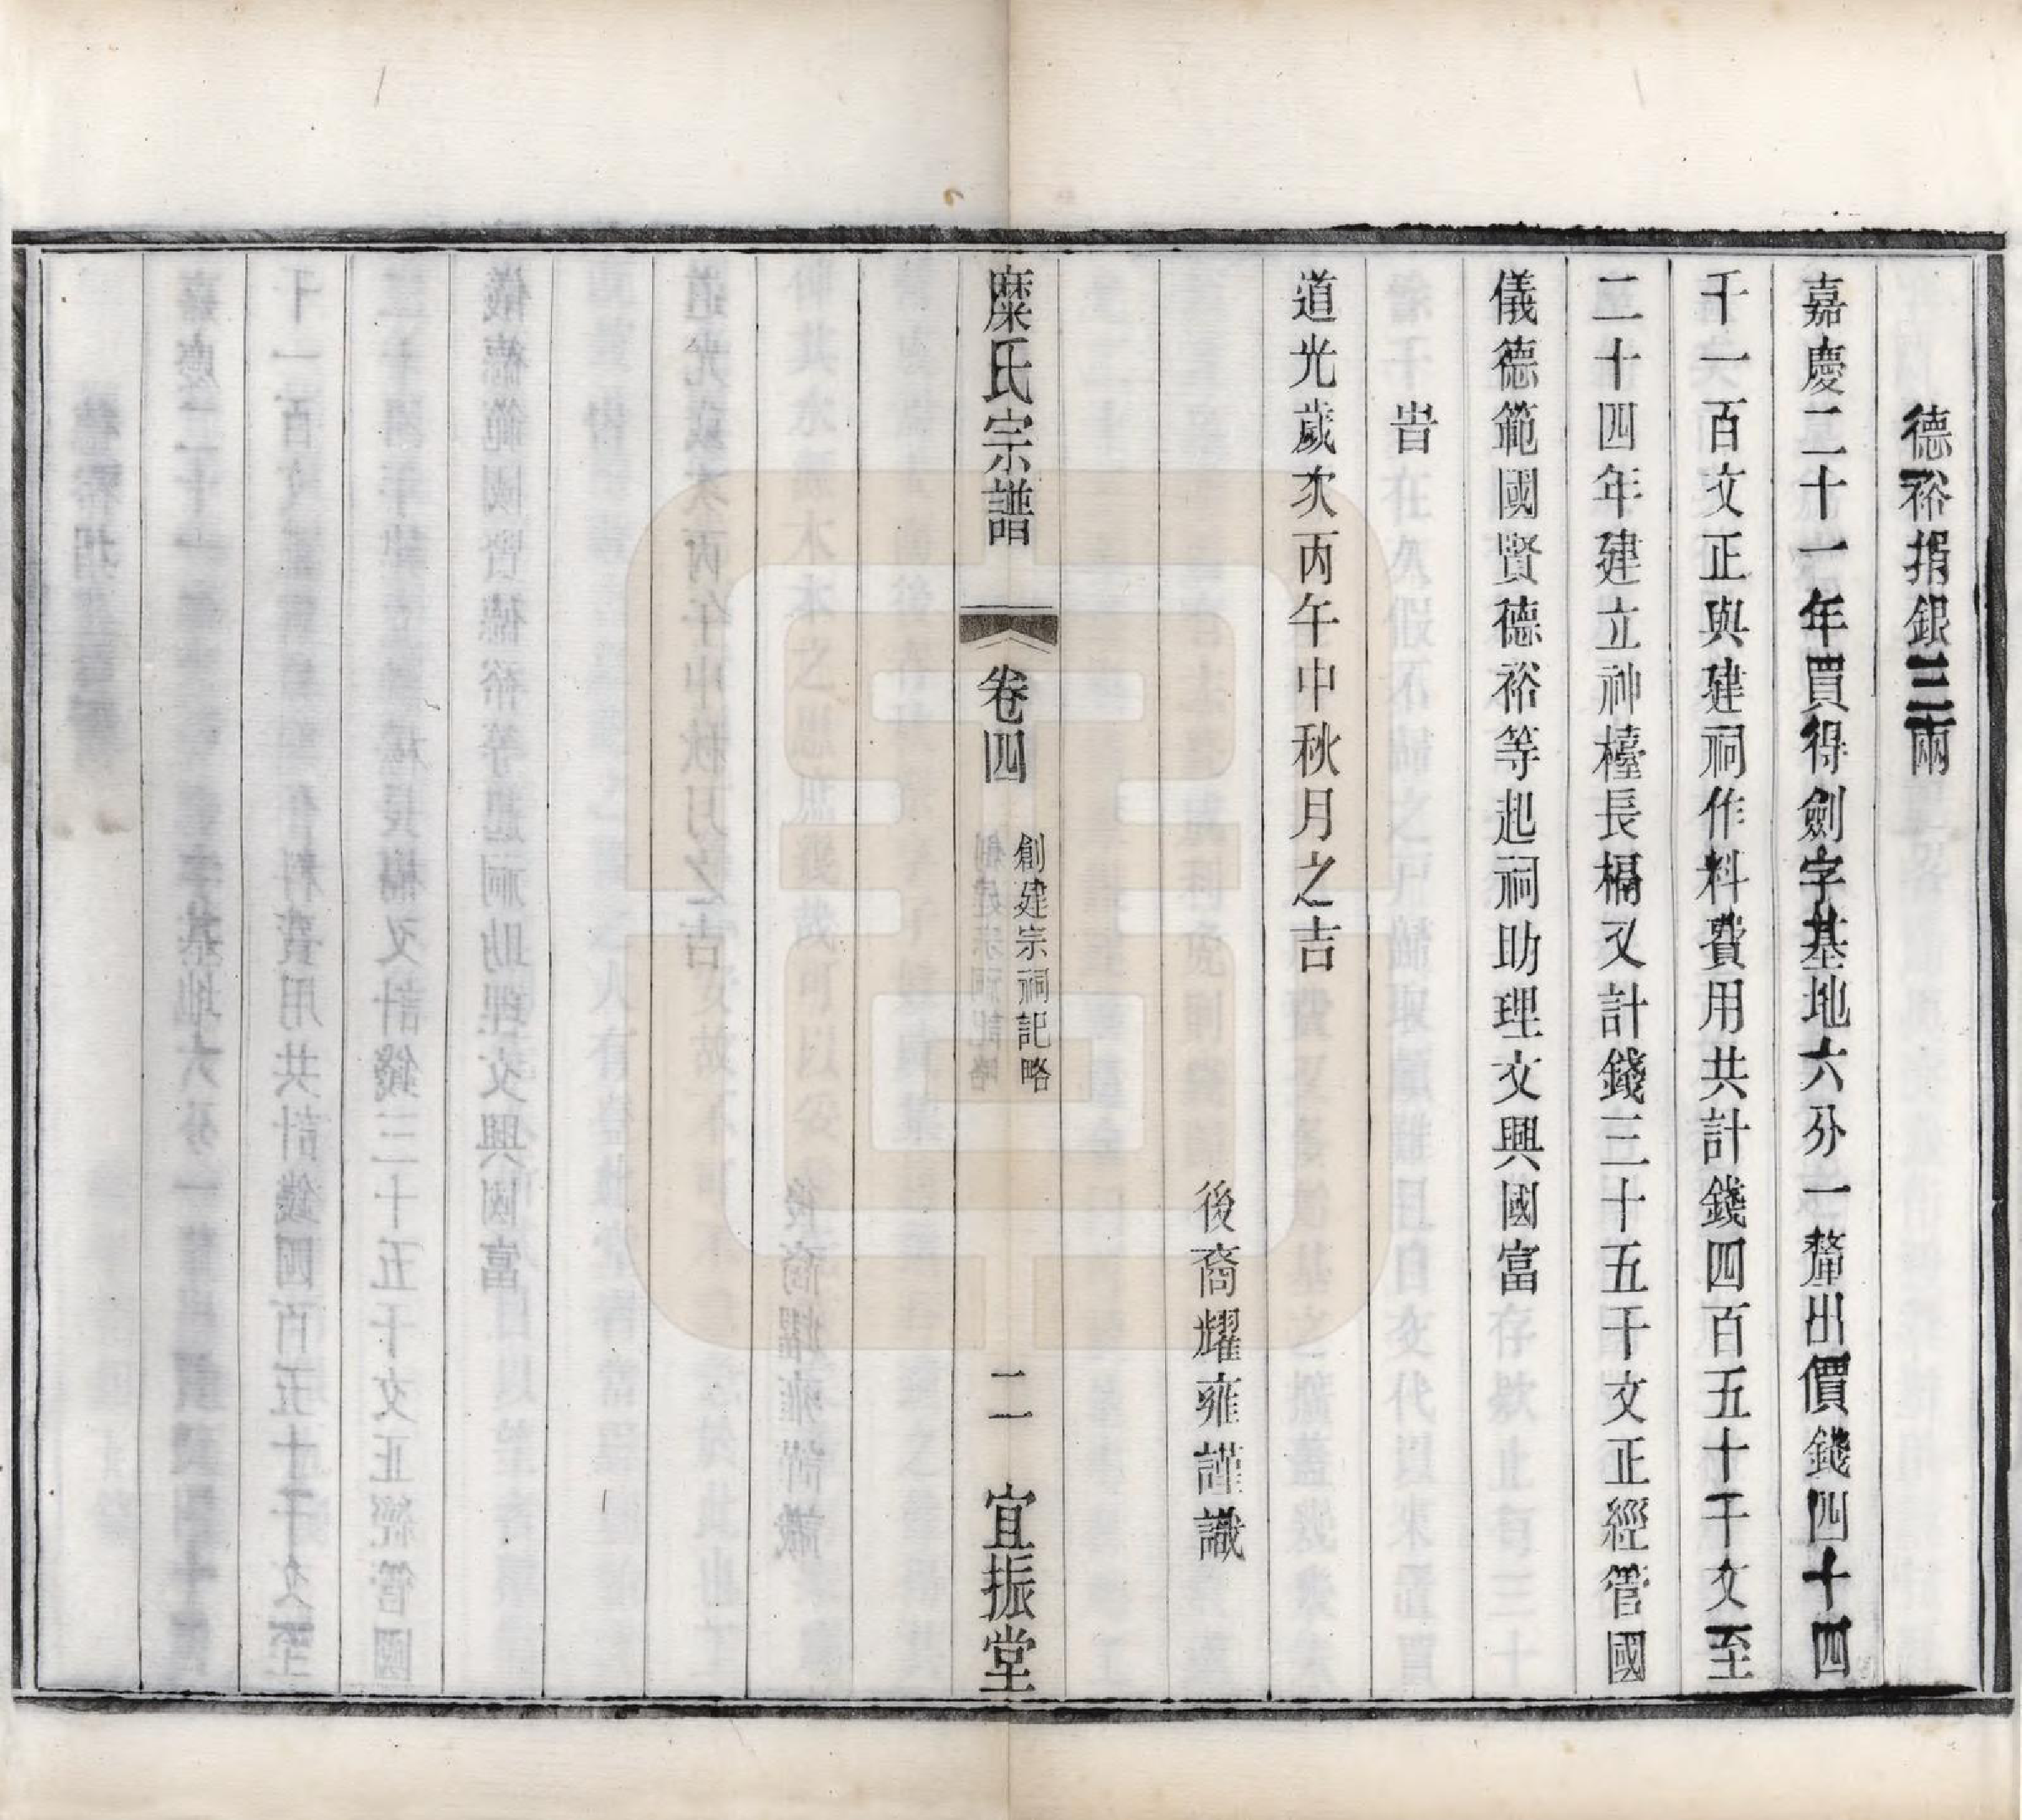 德裕捐銀三兩
嘉慶二十一年買得劍字基地六分一釐出價錢四十四
千一百文正與建祠作料費用共計錢四百五十千文至
二十四年建立神檯長槅又計錢三十五千文正經管國
儀德範國賢德裕等起祠助理文興國富
旹
道光歲次丙午中秋月之吉
後裔耀雍謹識
糜氏宗譜 卷四 創建宗祠記略 二 宜振堂